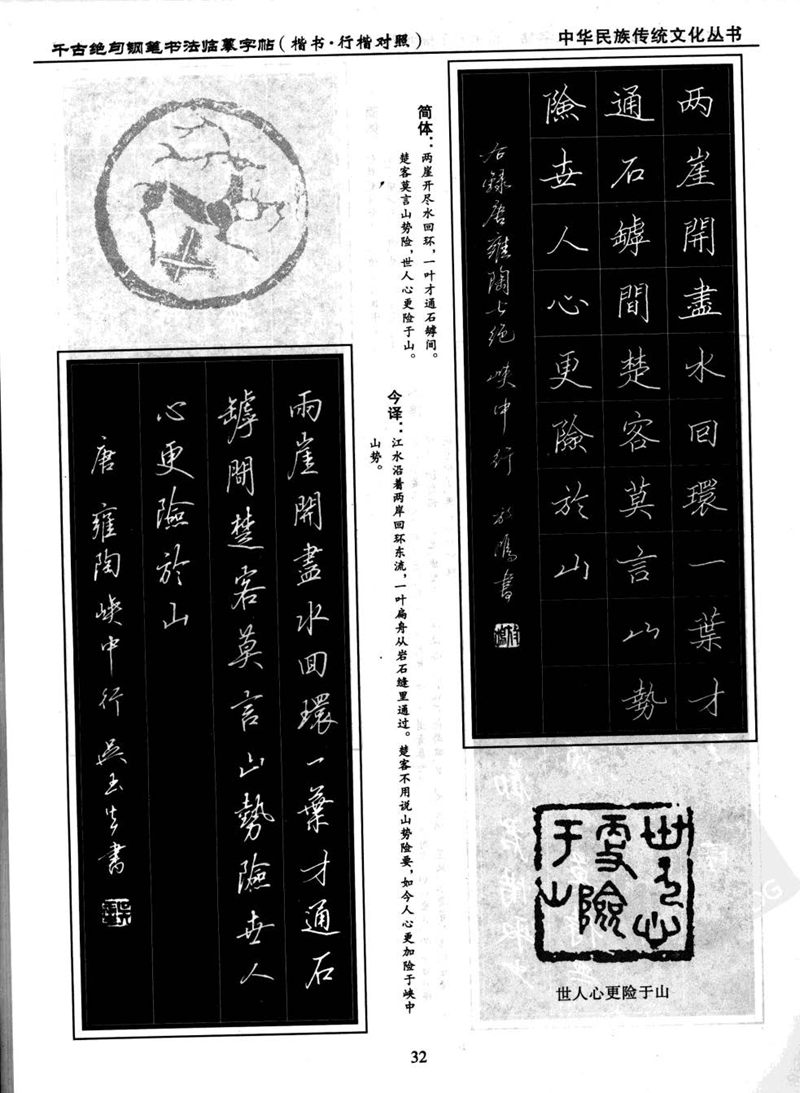 千古绝句钢笔书法临摹字帖（楷书·行楷对照）
中华民族传统文化丛书
两崖開盡水回環一葉才
通石罅間楚客莫言山勢
險世人心更險於山
右録唐雍陶七绝 峡中行
简体：两崖开尽水回环，一叶才通石罅间。
楚客莫言山势险，世人心更险于山。
今译：江水沿着两岸回环东流，一叶扁舟从岩石缝里通过。楚客不用说山势险要，如今人心更加险于峡中
山势。
兩崖開盡水回環一葉才通石
罅間楚客莫言山勢險世人
心更險於山
唐 雍陶 峡中行 吴玉生書
世人心
更險
于山
世人心更险于山
32